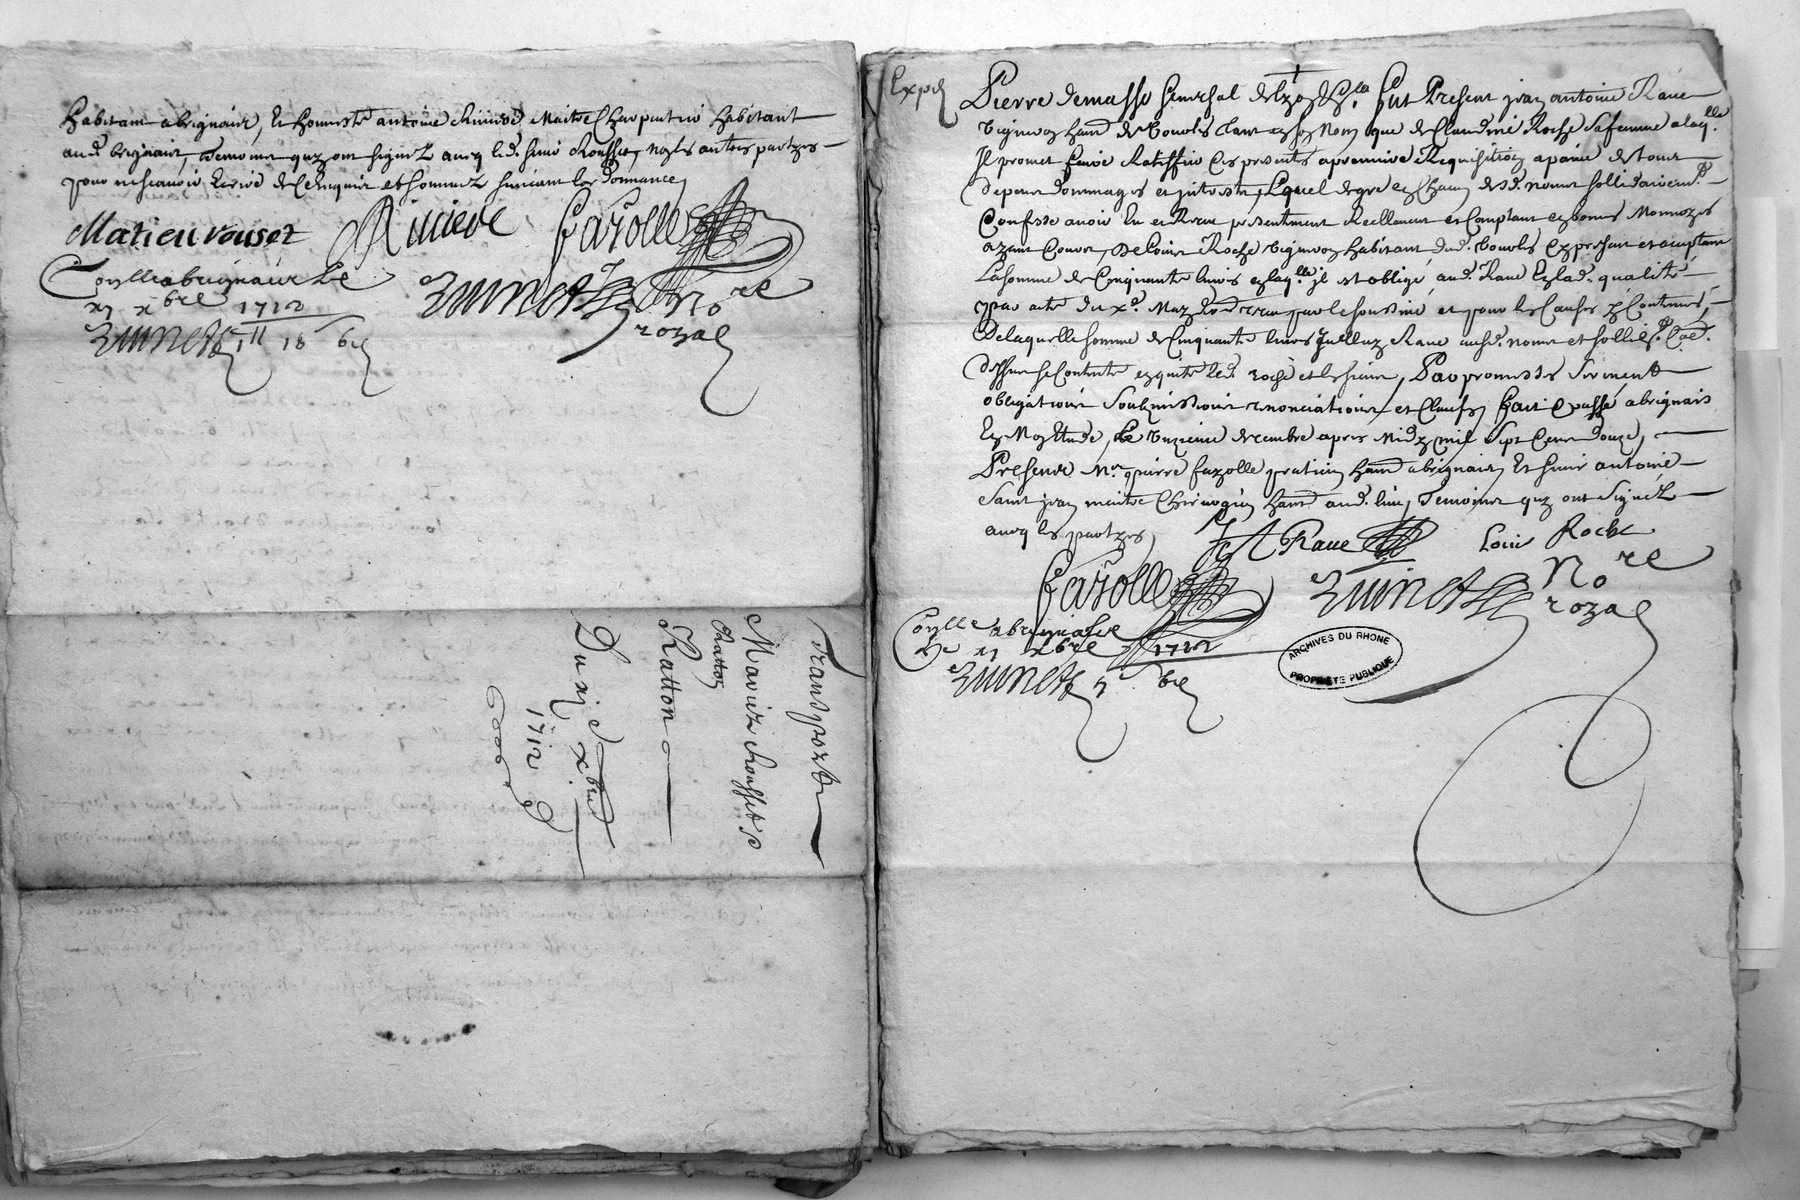 habitant abrignais, Et honneste antoine Riviere Maitre Charpentier habitant
aud. brignais, Temoins quy ont signéz avecq led. sieur Rousset, nogles autres partyes
pour ne scavoir Ecrire de Ce enquis et sommez suivant Lordonnance
Matieu rouset Riviere fazolle
Conlle abrignais Le
xj xbre 1712
Nore
rozal
18
Transport
Mariez Rousset
Ratton
Ratton
Du xj d xbre
1712
Expé
Pierre demasse senechal de Lyon fut Present jean antoine Raue
vigneron habt de Vourles tant en son Nom que de Claudine Roche Sa femme a laqlle
Jl promet faire Ratiffier Ces presentes a premiere Requisition a paine de tous
depens dommages et interests, Lequel de gre esd. noms sollidairemt
Confesse avoir Eu et Receu presentement Reellement et Comptant en bonnes Monnoyes
ayant Cours, de Louis Roche vigneron habitant dud. Vourles Cy present et acceptant
La somme de Cinquante livres jl est obligé aud. Raue Esd. qualité
par acte du xe May receu par le soussigné et pour les Causes y Contenues,
De laquelle somme de Cinquante livres Jcelluy Raue ausd. noms
dessus se Contente en quitte led. roche et les siens, Par promesses Serment
obligations Soubmissions renonciations et Clauses, fait Et passé abrignais
En Mon Etude, Le unzieme decembre apres Midy mil Sept Cent douze,
Presents Mre pierre fazolle praticien habt abrignais, Et sieur antoine
Saint jean maitre Chirurgien habt aud. lieu, Temoins quy ont Signéz
avecq les partyes
Raue Louis Roche
fazolle
Nore
rozal
Conlle abrignais
Le xj xbre 1712
ARCHIVES DU RHONE
PROPRIETE PUBLIQUE